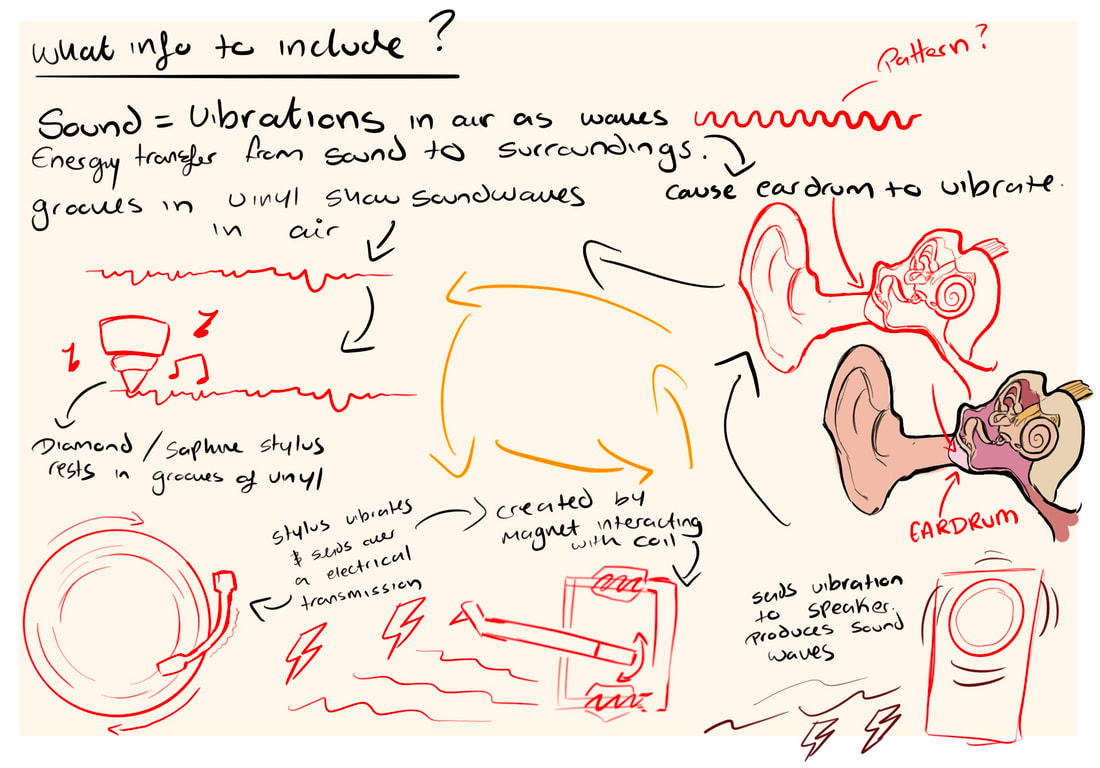 what info to include ?
Pattern?
Sound = vibrations in air as waves
Energy transfer from sound to surroundings.
cause eardrum to vibrate.
grooves in vinyl show soundwaves
in air
Diamond / Saphire stylus
rests in grooves of vinyl
EARDRUM
stylus vibrates
& sends over
a electrical
transmission
created by
magnet interacting
with coil
sends vibration
to speaker.
produces sound
waves